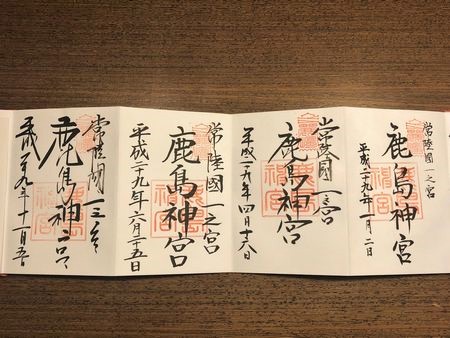 常陸國一之宮
鹿島神宮
平成二十九年一月二日
常陸國一之宮
鹿島神宮
平成二十九年四月十六日
常陸國一之宮
鹿島神宮
平成二十九年六月二十五日
常陸國一之宮
鹿島神宮
平成二十九年十一月五日